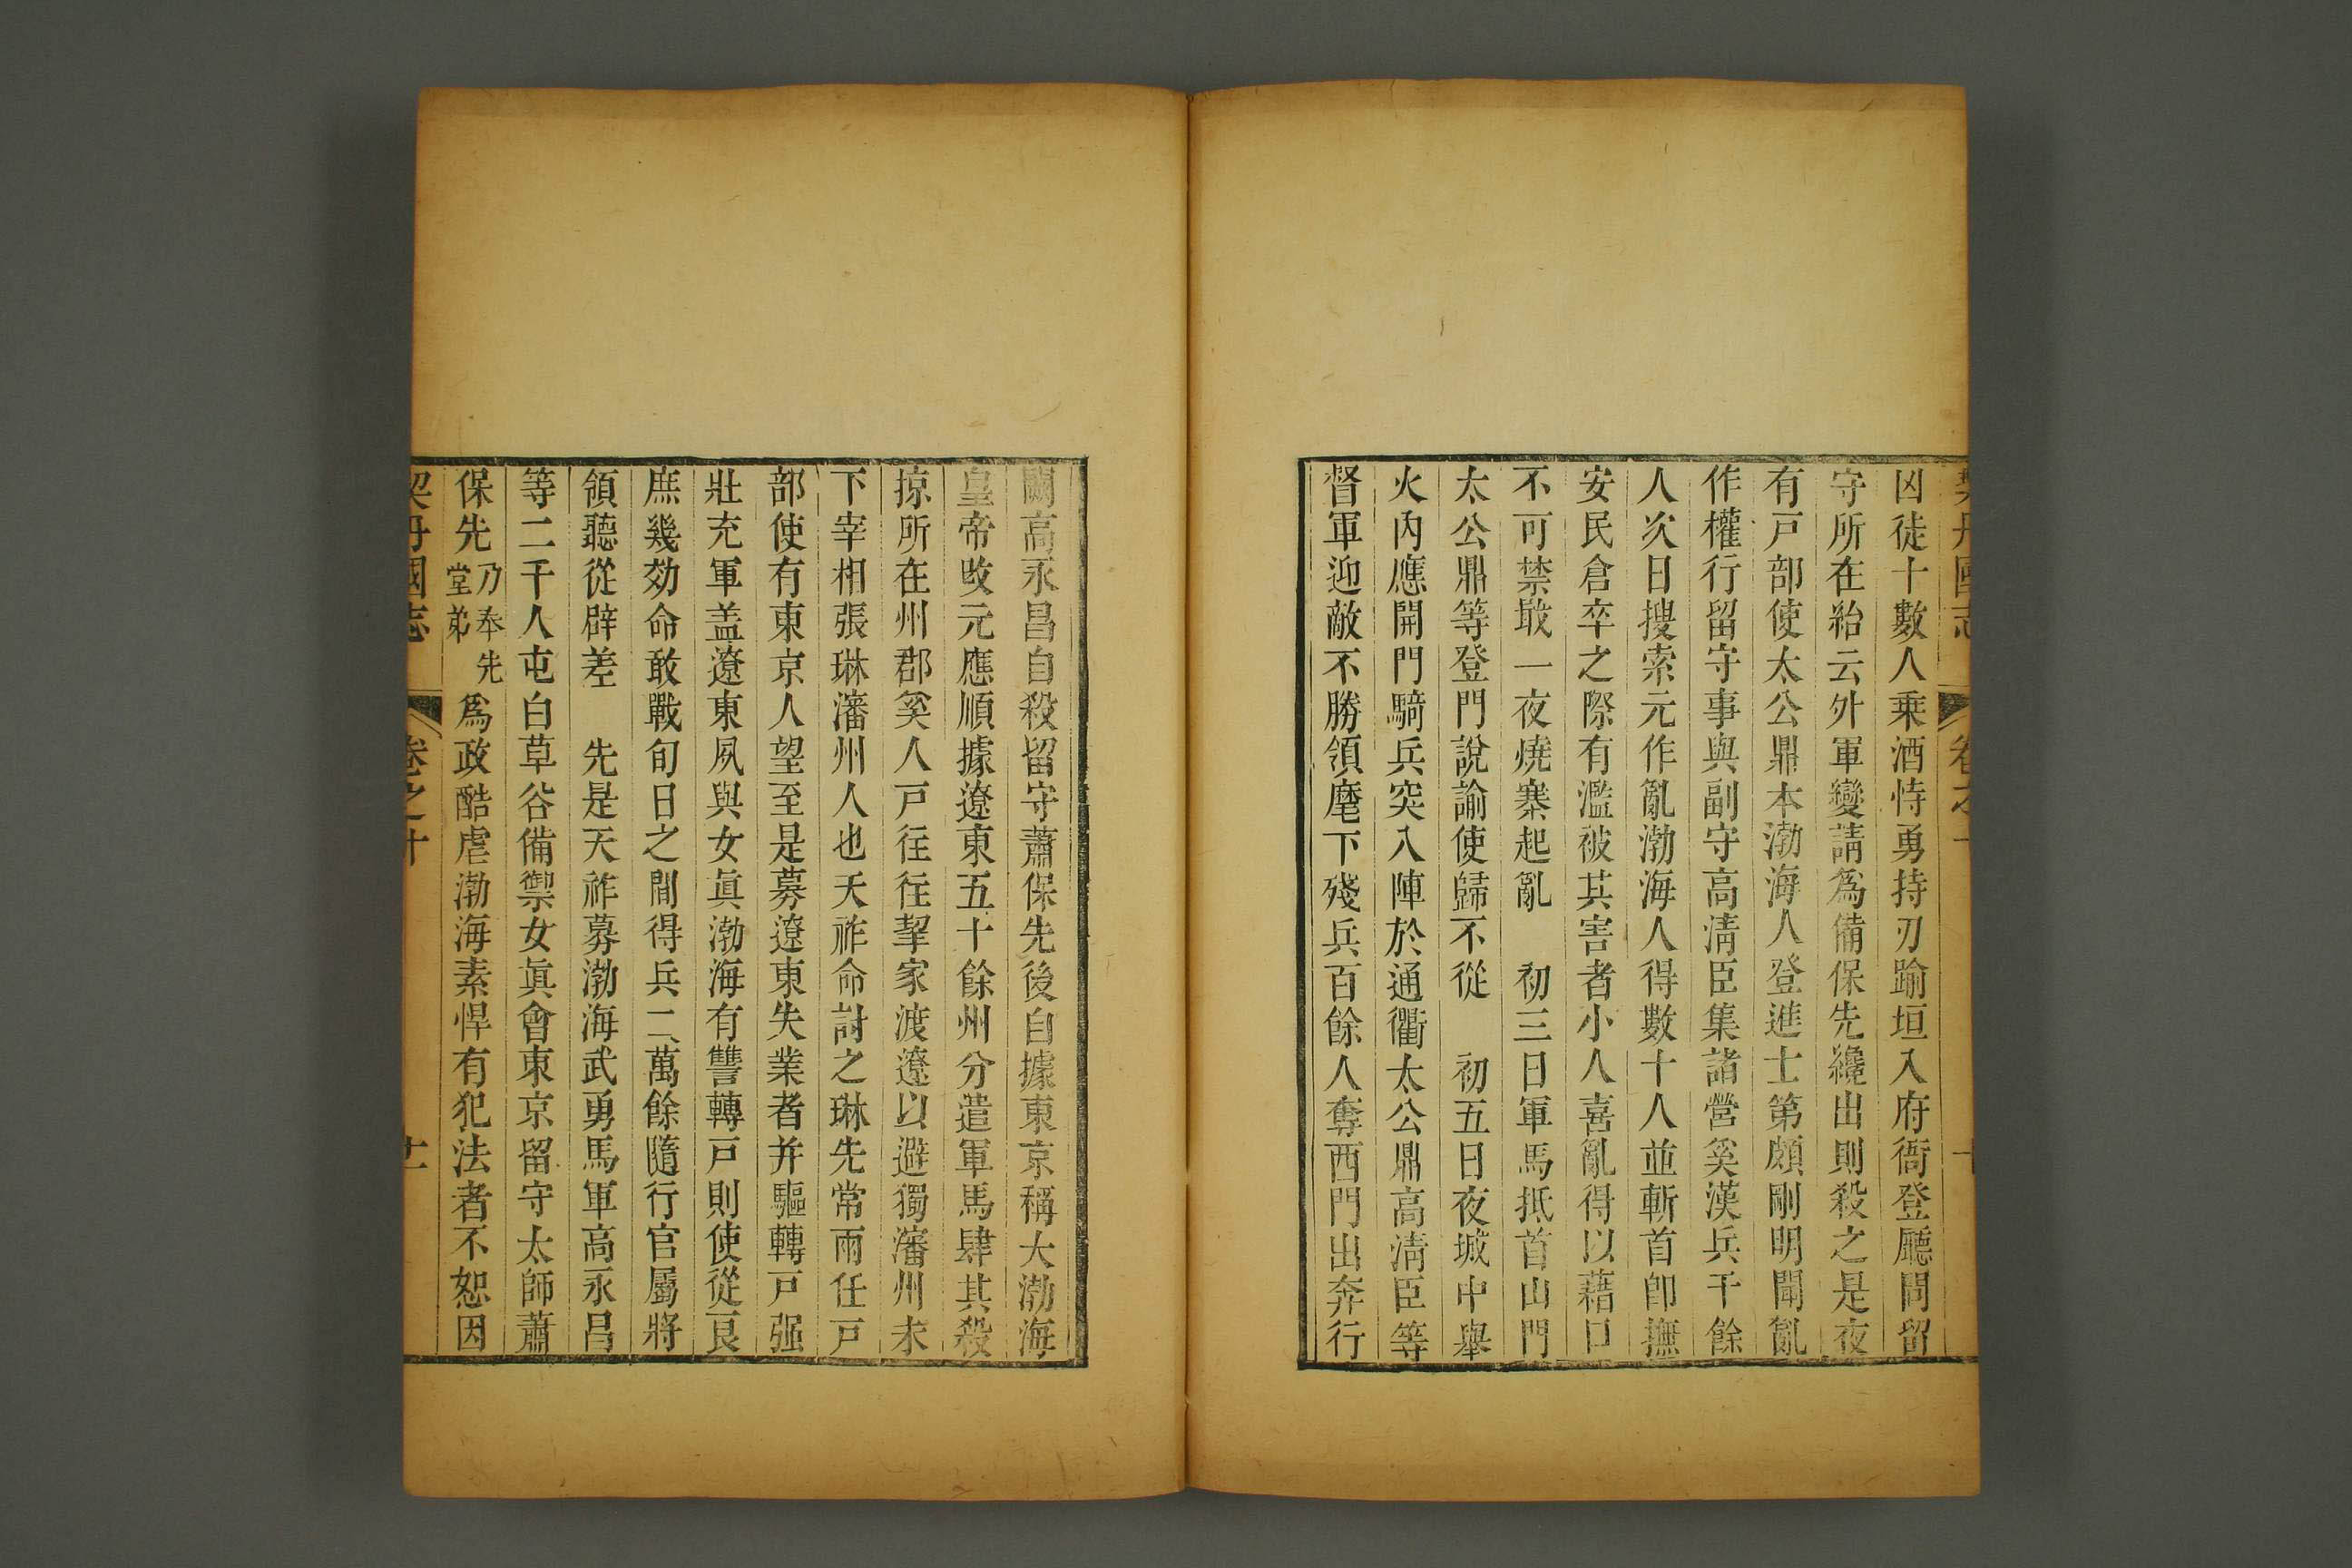 契丹國志 卷之十
凶徒十數人乗酒恃勇持刃踰垣入府衙登廳問留
守所在紿云外軍變請爲備保先纔出則殺之是夜
有戸部使太公鼎本渤海人登進士第頗剛明聞亂
作權行留守事與副守高淸臣集諸營奚漢兵千餘
人次日搜索元作亂渤海人得數十人並斬首卽撫
安民倉卒之際有濫被其害者小人喜亂得以藉口
不可禁戢一夜燒寨起亂　初三日軍馬抵首山門
太公鼎等登門說諭使歸不從　初五日夜城中舉
火内應開門騎兵突入陣於通衢太公鼎高淸臣等
督軍迎敵不勝領麾下殘兵百餘人奪西門出奔行
闕高永昌自殺留守蕭保先後自據東京稱大渤海
皇帝改元應順據遼東五十餘州分遣軍馬肆其殺
掠所在州郡奚人戸往往挈家渡遼以避獨瀋州未
下宰相張琳瀋州人也天祚命討之琳先常兩任戸
部使有東京人望至是募遼東失業者并驅轉戸强
壯充軍盖遼東夙與女眞渤海有讐轉戸則使從良
庶幾効命敢戰旬日之間得兵二萬餘隨行官屬將
領聽從辟差　先是天祚募渤海武勇馬軍高永昌
等二千人屯白草谷備禦女眞會東京留守太師蕭
保先乃奉先堂弟爲政酷虐渤海素悍有犯法者不恕因
契丹國志 卷之十 十一